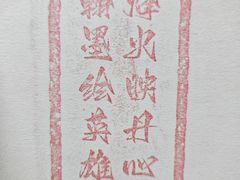 烽火映丹心
翰墨绘英雄